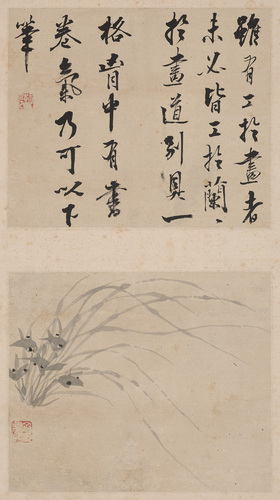 雖有工於畫者
未必皆工於蘭〻
於畫道別具一
格胷中有書
卷氣乃可以下
筆